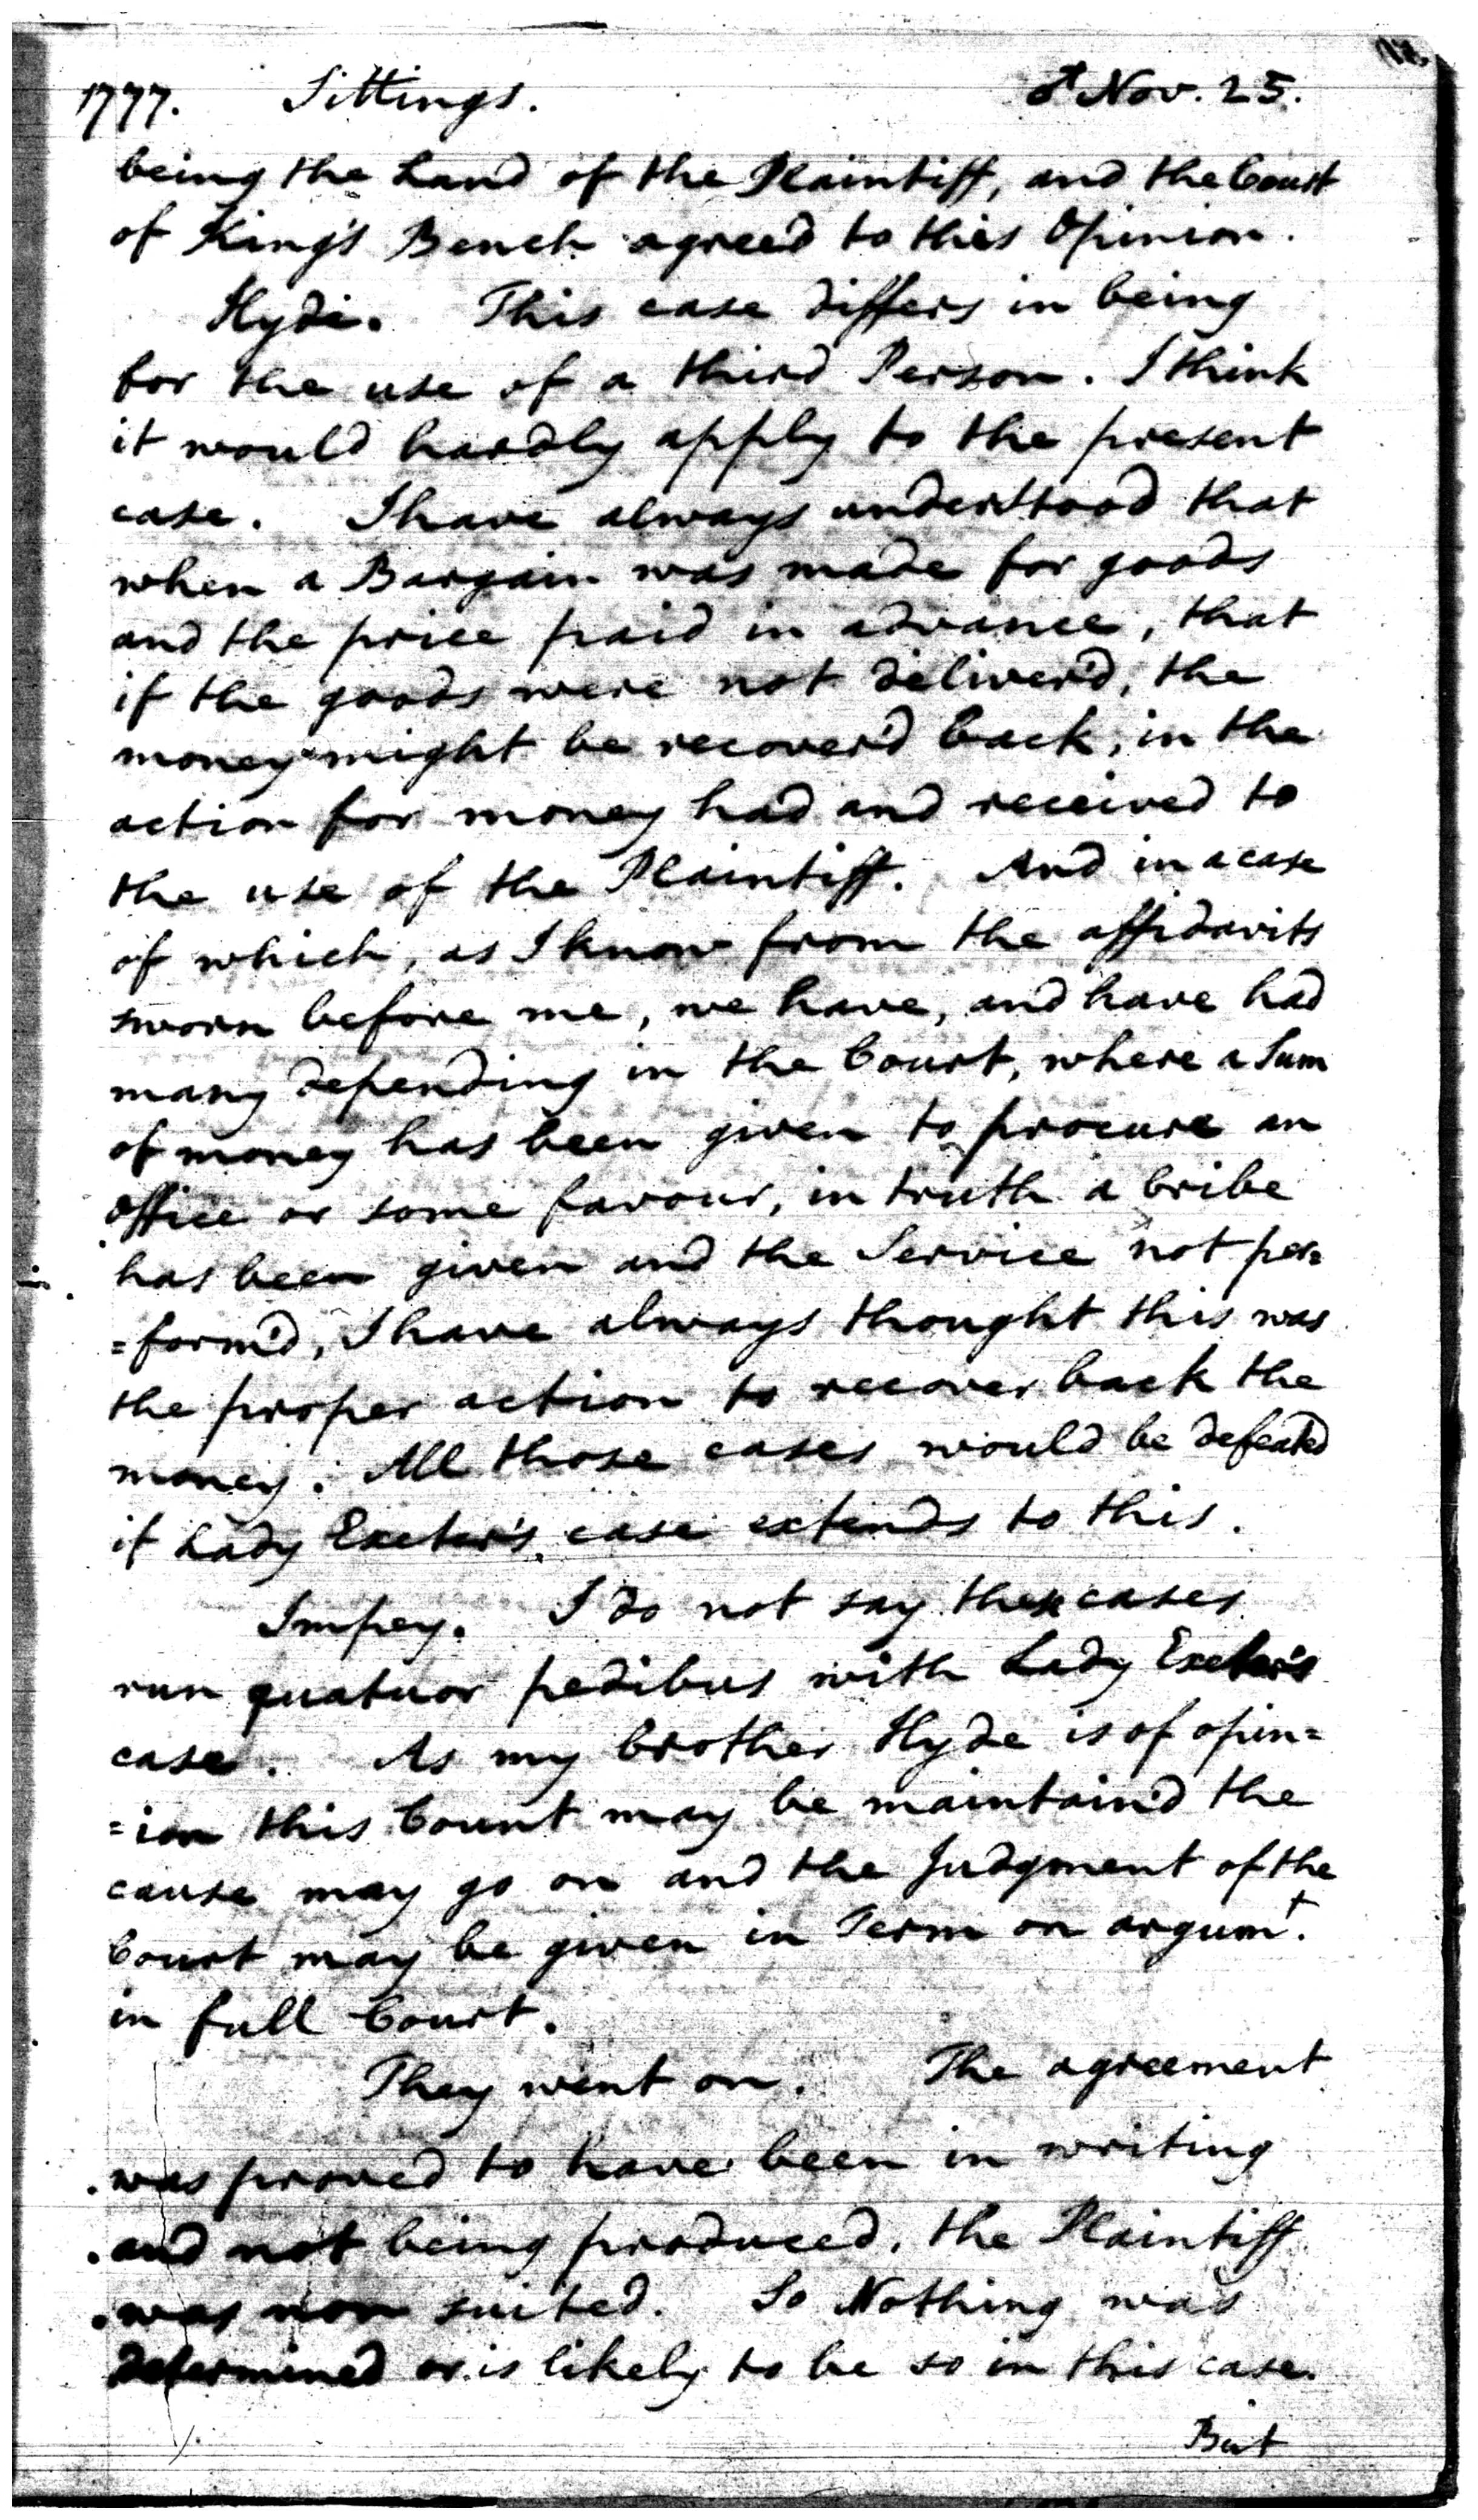 1777. Sittings. ♂ Nov. 25.
being the Land of the Plaintiff, and the Court
of King's Bench agreed to this Opinion.
Hyde. This case differs in being
for the use of a third Person. I think
it would hardly apply to the present
case. I have always understood that
when a Bargain was made for goods
and the price paid in advance, that
if the goods were not deliver'd, the
money might be recover'd back, in the
action for money had and received to
the use of the Plaintiff. And in a case
of which, as I know from the affidavits
sworn before me, we have, and have had
many depending in the Court, where a Sum
of money has been given to procure an
office or some favour, in truth a bribe
has been given and the Service not per=
=form'd, I have always thought this was
the proper action to recover back the
money. All those cases would be defeated
if Lady Exeter's case extends to this.
Impey. I do not say these cases
run quatuor pedibus with Lady Exeter's
case. As my brother Hyde is of opin=
=ion this Count may be maintain'd the
cause may go on and the Judgment of the
Court may be given in Term on argumt.
in full Court.
They went on. The agreement
was proved to have been in writing
and not being produced, the Plaintiff
was non suited. So Nothing was
determined or is likely to be so in this case.
But